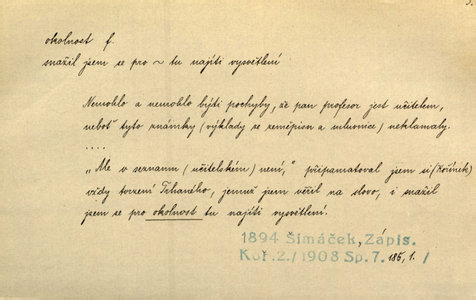 3.
okolnost f.
snažil jsem se pro ~ tu najíti vysvětlení
Nemohlo a nemohlo býti pochyby, že pan profesor jest učitelem,
neboť tyto známky (výklady ze zeměpisu a mluvnice) neklamaly.
....
„Ale v seznamu (učitelském) není," připamatoval jsem si /Kořínek/
vždy tvrzení Trhaného, jemuž jsem věřil na slovo, i snažil
jsem se pro okolnost tu najíti vysvětlení.
1894 Šimáček, Zápis.
Koř.2./1908 Sp.7. 186,1./